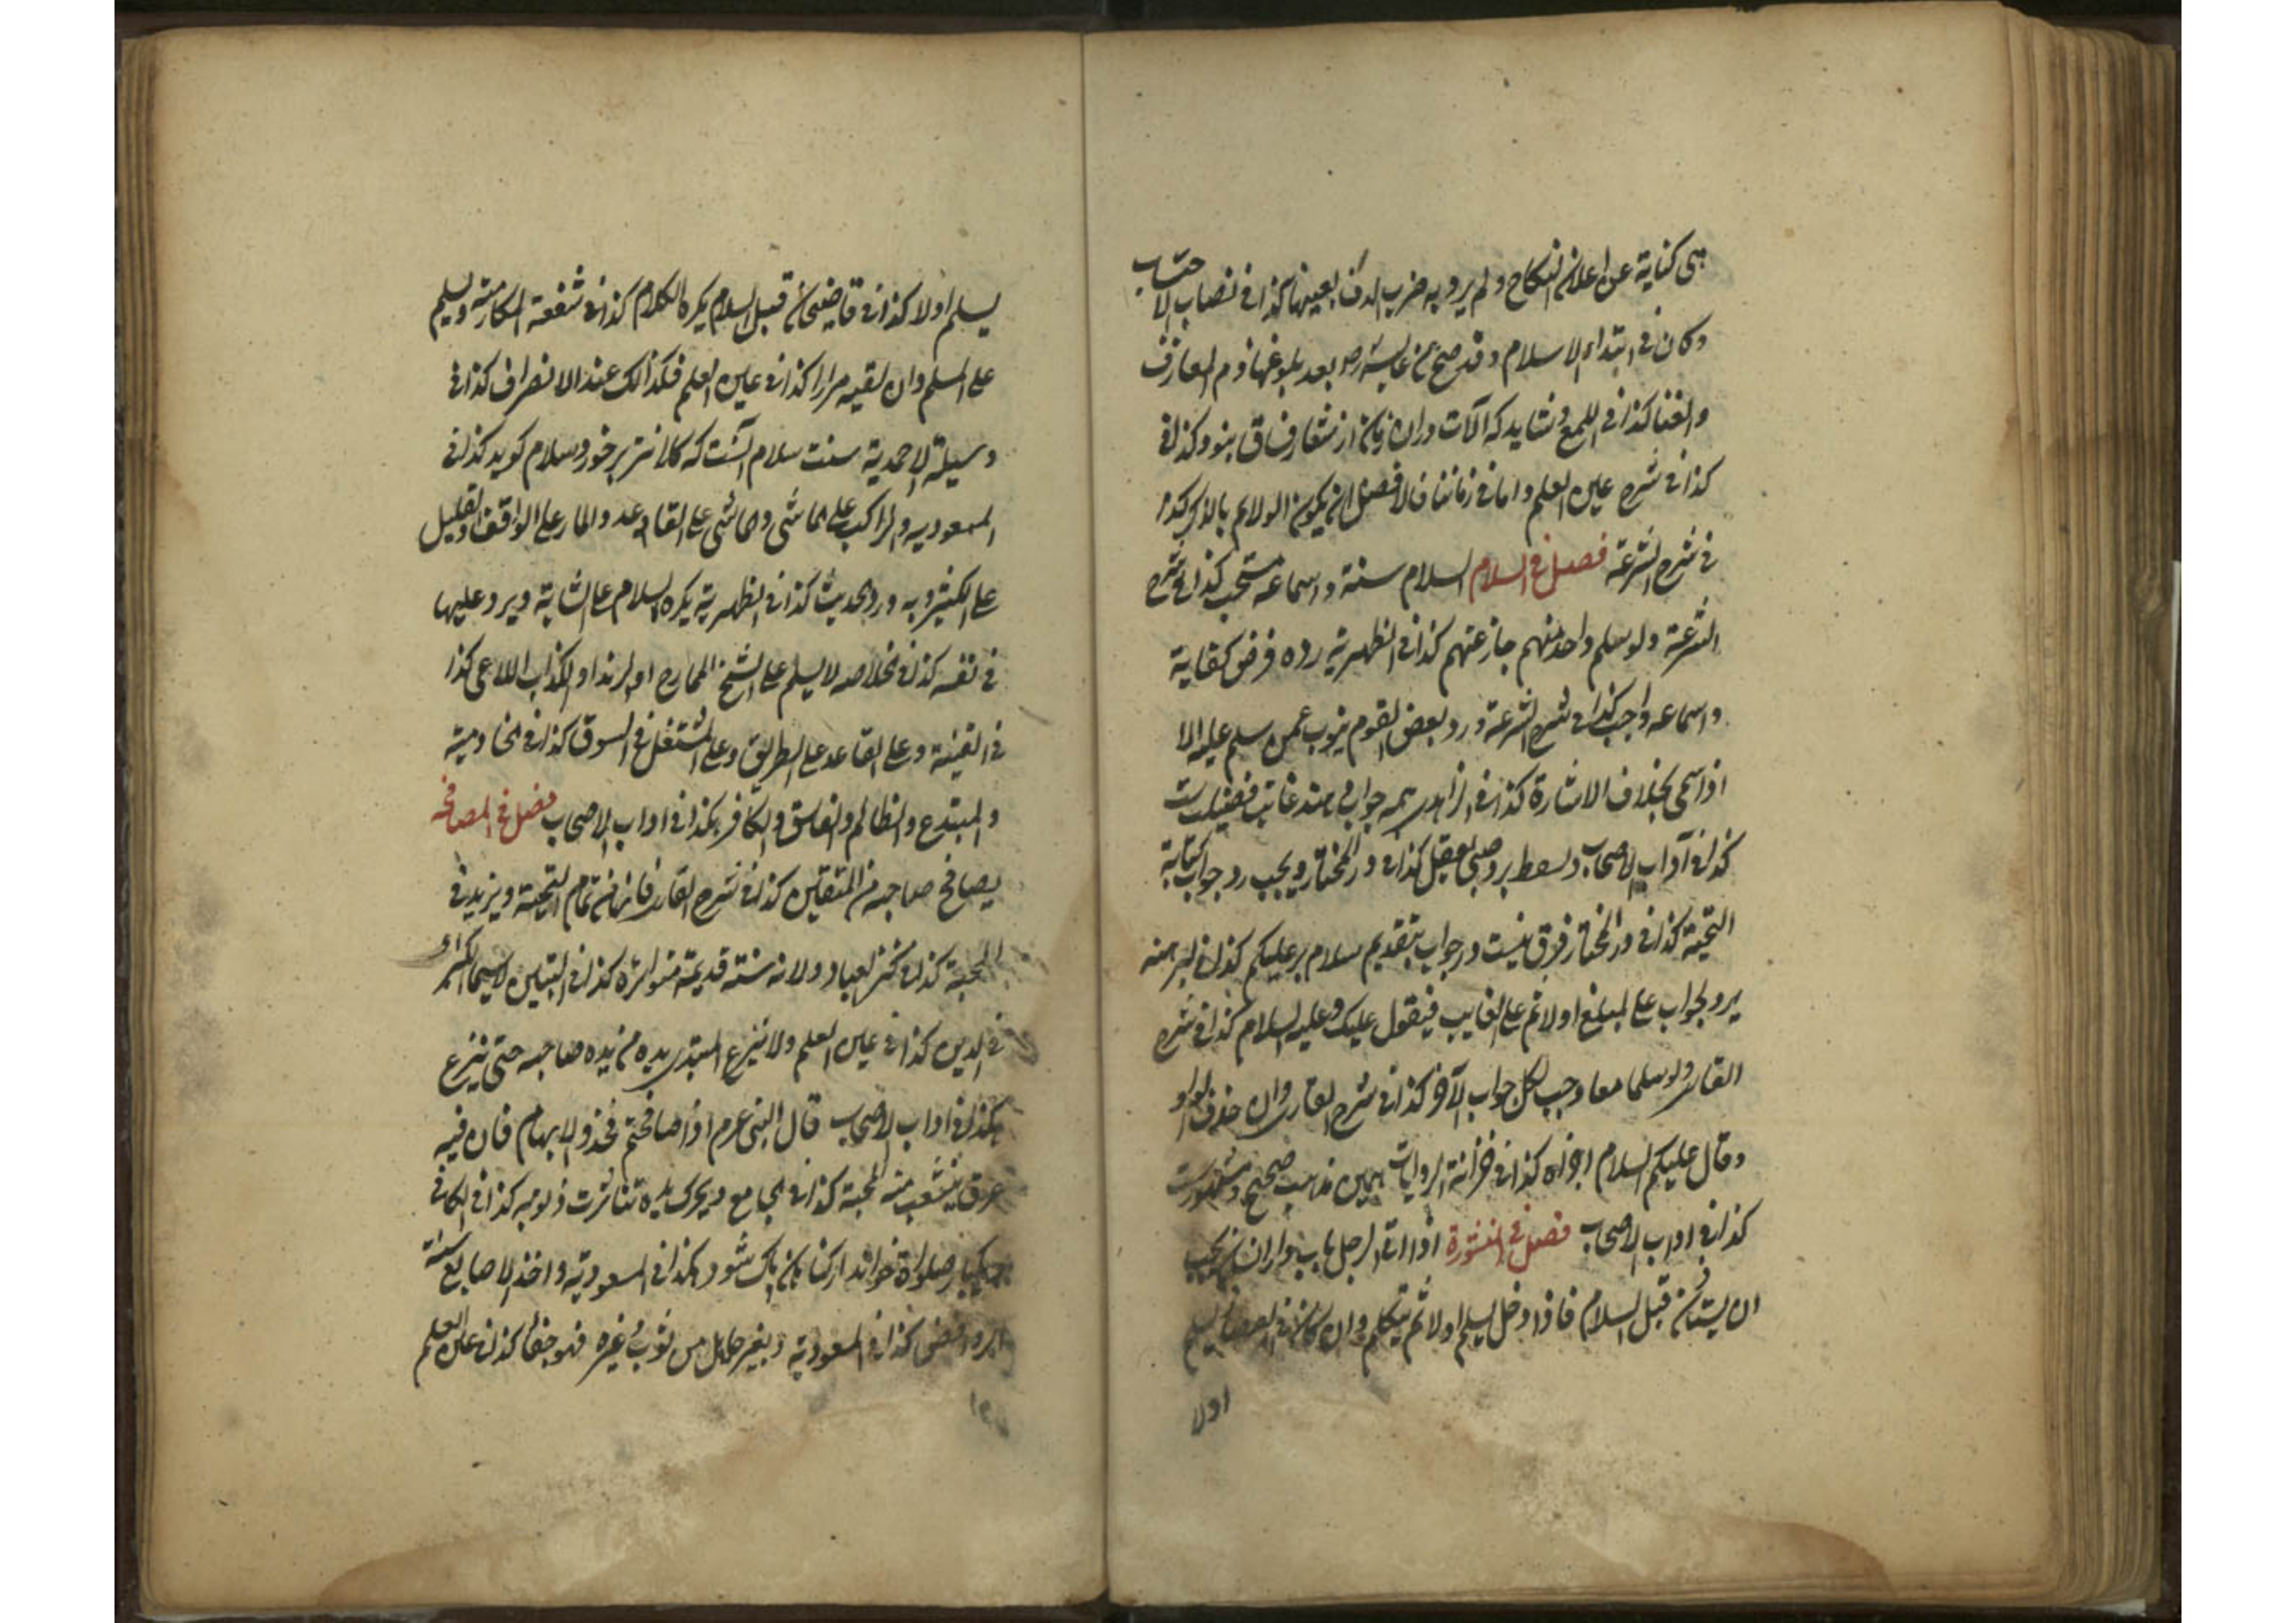 هی کنایة عن اعلان النکاح ولم یرد به ضرب الدف بعینها کذا فی نصاب الاحتساب
وکان فی ابتداء الاسلام وقد صح عن عایشه رض بعد بلوغها ذم المعازف
والغنا کذا فی اللمع و شاید که آلات دران زمان از شعار فساق نبود کذا فی
کذا فی شرح عین العلم واما فی زماننا فالافضل ان یکون الولایم بالذکر کذا
فی شرح الشرعة فصل فی السلام السلام سنة واسماعه مستحب کذا فی شرح
الشرعة ولو سلم واحد منهم جاز عنهم کذا فی الظهیریة رده فرض کفایة
واسماعه واجب کذا فی شرح الشرعة ورد بعض القوم ینوب عمن سلم علیه الا
اذا سمی بخلاف الاشارة کذا فی
کذا فی آداب الاصحاب و یسقط برد صبی یعقل کذا فی در المختار ویجب رد جواب کتابة
التحیة کذا فی در المختار فرق نیست در جواب بتقدیم سلام بر علیکم کذا فی
یرد الجواب علی المبلغ اولا ثم علی الغایب فیقول علیک وعلیه السلام کذا فی شرح
القاری ولو سلما معا وجب لکل جواب الآخر کذا فی شرح القاری وان حذف الواو
وقال علیکم السلام اجزاه کذا فی خزانة الروایات همین مذهب صحیح و مشهورست
کذا فی اداب الاصحاب فصل فی اذا اتی الرجل باب دار انسان یجب
ان یستأذن قبل السلام فاذا دخل یسلم اولا ثم یتکلم وان کان فی الفضا یسلم
اولا
یسلم اولا کذا فی قاضیخان قبل السلام یکره الکلام کذا فی ویسلم
علی المسلم وان لقیه مرارا کذا فی عین العلم فکذالک عند الانصراف کذا فی
وسیلة الاحمدیة سنت سلام آنست که کلانتر بر خورد سلام کوید کذا فی
المسعودیه والراکب علی الماشی وماشی علی القاعد والمار علی الواقف والقلیل
علی الکثیر وبه ورد الحدیث کذا فی الظهیریة یکره السلام علی الشابة ویرد علیها
فی نفسه کذا فی خلاصه لا یسلم علی الشیخ الممازح او الرند او الکذاب اللاعی کذا
فی القینة وعلی القاعد علی الطریق وعلی المشتغل فی السوق کذا فی
والمبتدع والظالم والفاسق والکافر کذا فی اداب الاصحاب فصل فی المصافحة
یصافح صاحبه من المتقین کذا فی شرح القاری فانها من تمام التحیة ویزید فی
المحبة کذا فی کنز العباد ولانه سنة قدیمة متواترة کذا فی التبیین لاسیما
فی الدین کذا فی عین العلم ولا ینزع المبتدی یده من یده صاحبه حتی ینزع
کذا فی اداب الاصحاب قال النبی عرم اذا صافحتم فخذو الابهام فان فیه
عرق ینشعب منه المحبة کذا فی الجامع ویحرک یده تناثرت ذنوبه کذا فی الکافی
یکبار صلواة خواند از کناهان پاک شود کذا فی المسعودیة واخذ الاصابع سنة
الروافض کذا فی المسعودیة وبغیر حایل من ثوب وغیره فهو جفا کذا فی عین العلم